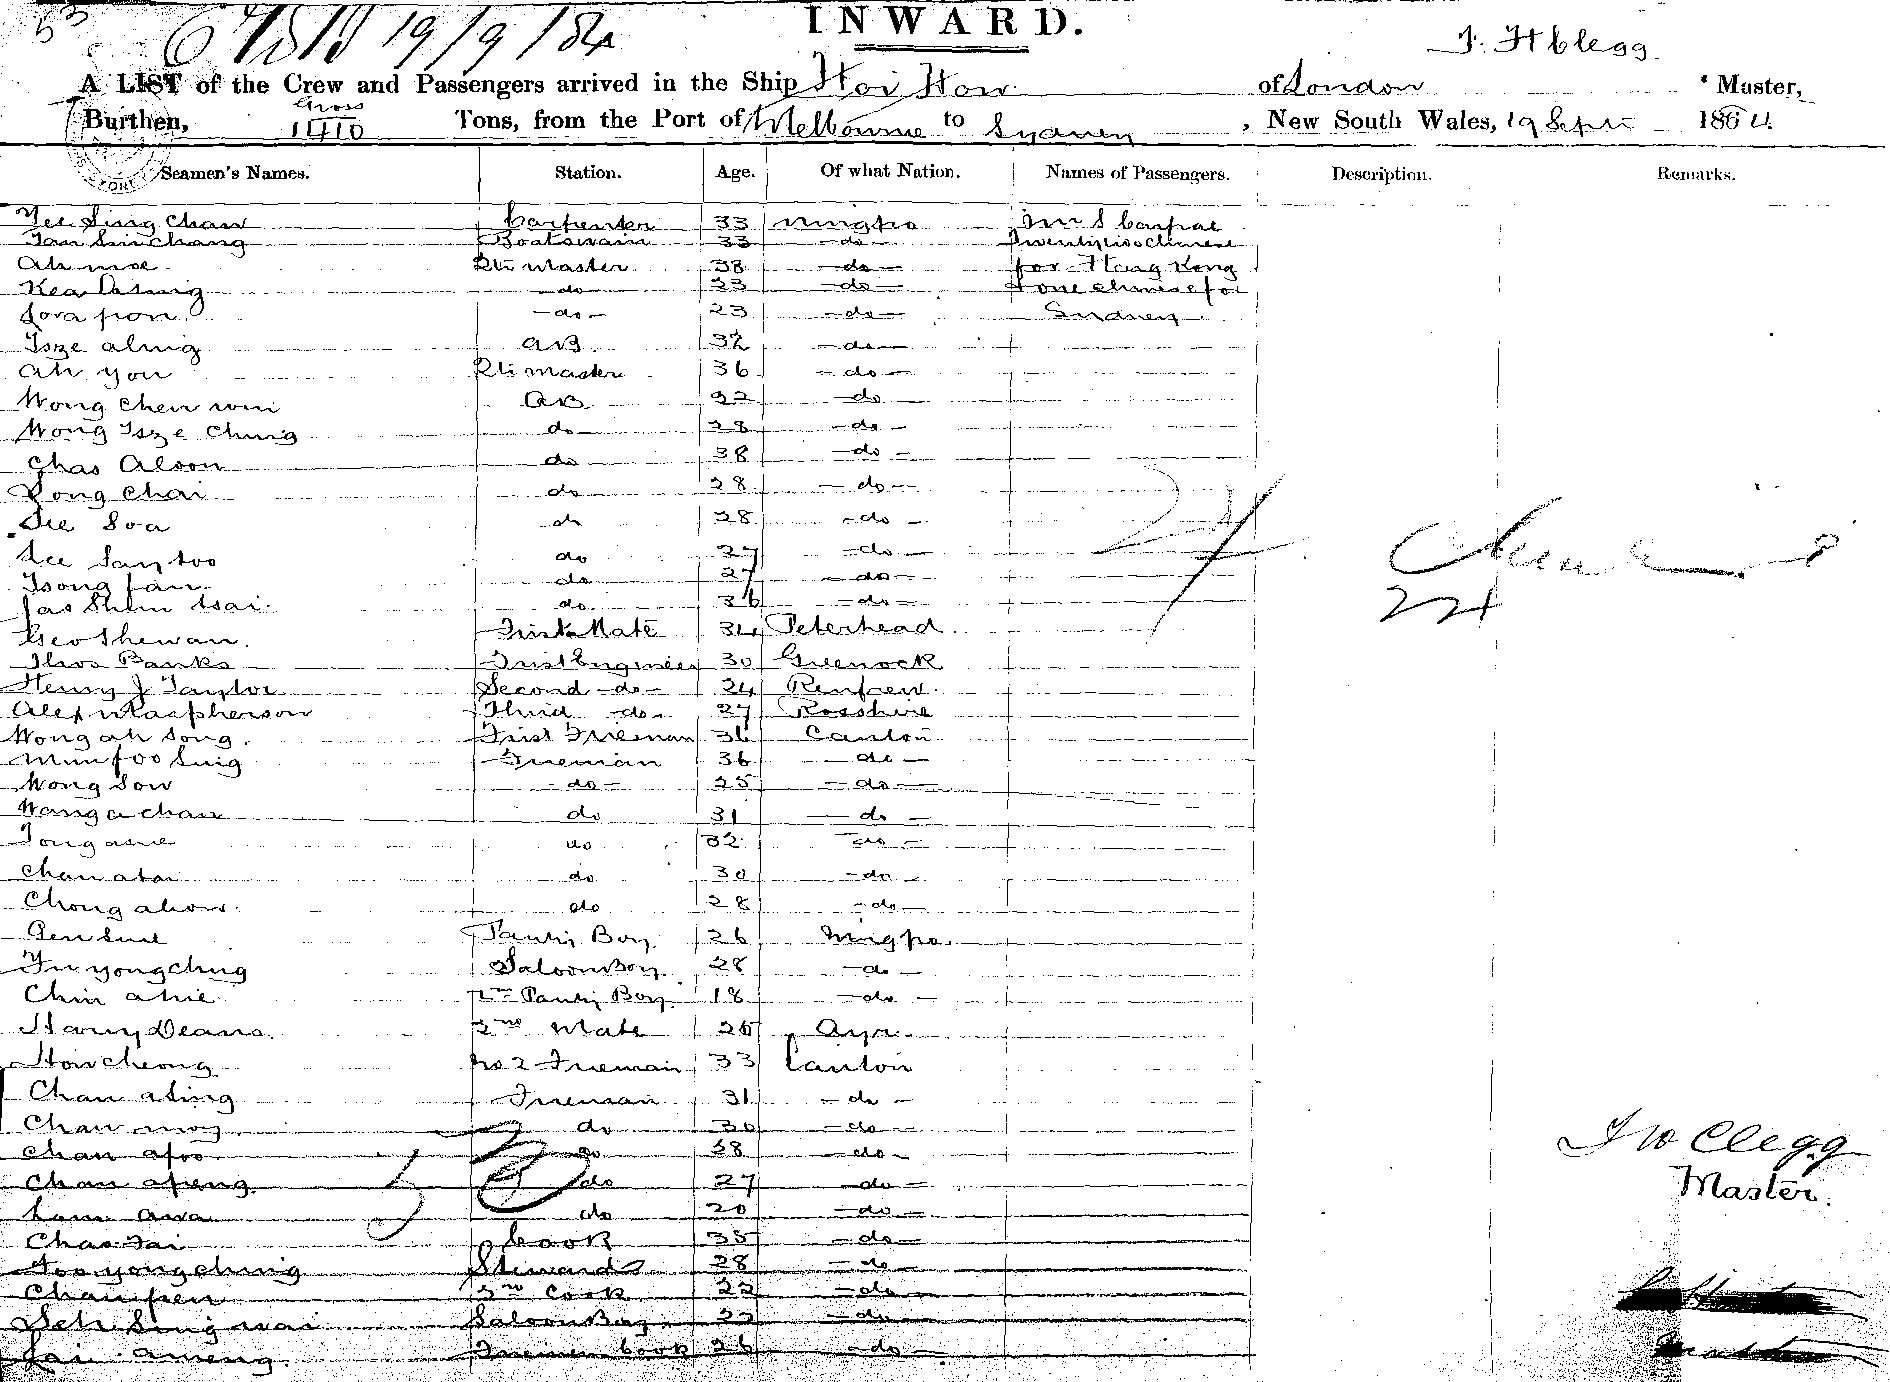 53
19/9/84
INWARD.
A LIST of the Crew and Passengers arrived in the Ship Hoi How of London Master,
Burthen, Gross 1410 Tons, from the Port of Melbourne to Sydney, New South Wales, 19 Sept 1884
Seamen's Names. Station. Age. Of what Nation. Names of Passengers. Description. Remarks.
Yee Sing Chaw Carpenter 33 Ningpo Mr S
Boatswain 33 -do- Twentytwo Chinese
Ah moe Master 38 -do- for Hong Kong
-do- 23 -do- one chinese for
-do- 23 -do- Sydney
Tsze aling AB 32 -do-
Ah you Master 36 -do-
Wong Chen AB 22 -do-
Wong Tsze Ching do 28 -do-
Chas Aloon do 38 -do-
Dong Chai do 28 -do-
See Soa do 28 -do-
do 27 -do-
Tsong do 27 -do-
Jas Shim tsai do 36 -do-
Geo Shewan First Mate 34 Peterhead
Thos Banks First Engineer 30 Greenock
Henry J Taylor Second -do- 24 Renfrew
Alex Macpherson Third -do- 27 Rosshire
Wong ah Song First Fireman 36 Canton
Mun foo Sing Fireman 36 -do-
Wong Sow -do- 25 -do-
Wang a chan do 31 -do-
do 32 -do-
Chan atai do 30 -do-
Chong ahow do 28 -do-
Pantry Boy 26 Ningpo
Fu yong ching Saloon Boy 28 -do-
Chin ahie 2nd Pantry Boy 18 -do-
Harry Deans 2nd Mate 26 Ayr
How Cheong No 2 Fireman 33 Canton
Chan aling Fireman 31 -do-
Chan moy do 30 -do-
Chan afoo do 28 -do-
Chan apeng do 27 -do-
Lam awa do 20 -do-
Chas Tai Cook 35 -do-
Foo yong ching Steward 28 -do-
Chan pen 2nd Cook 22 -do-
Sing wai Saloon Boy 22 -do-
ameng Firemen Cook 26 -do-
24
Clegg
Master.